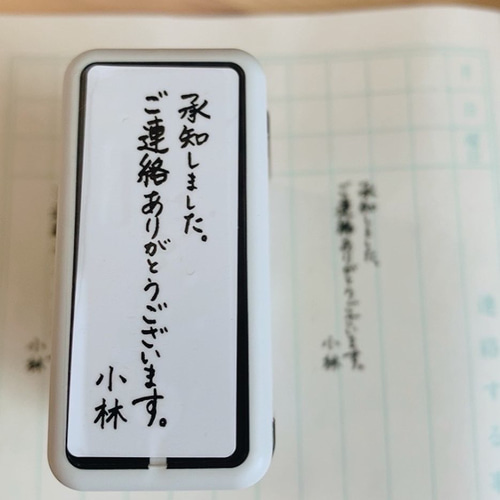 承知しました。
ご連絡ありがとうございます。
小林
承知しました。
ご連絡ありがとうございます。
小林
小林